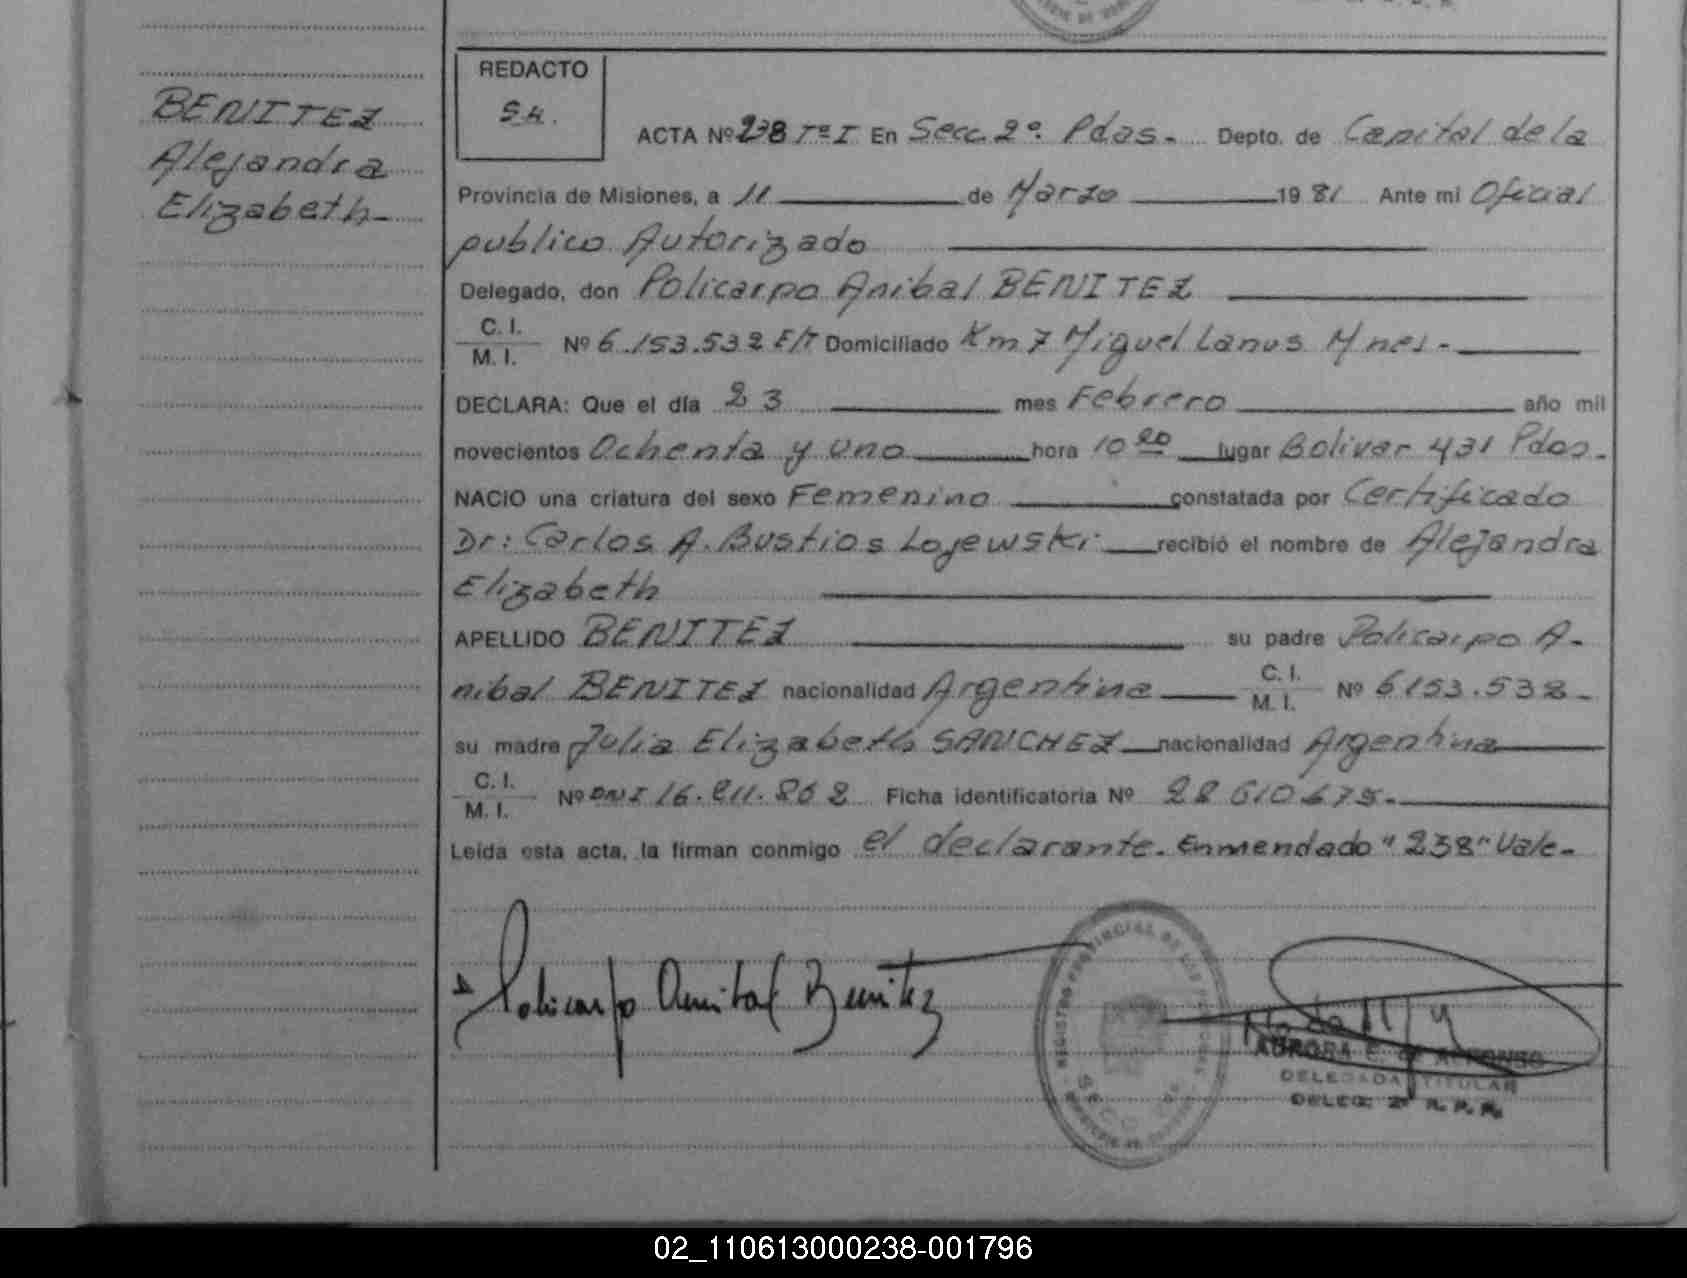 BENITEZ
Alejandra
Elizabeth-
REDACTO
S.H.
ACTA Nº 238 TºI En Secc. 2º. Pdas.- Depto. de Capital de la
Provincia de Misiones, a 11 de Marzo 19 81 Ante mi Oficial
publico Autorizado
Delegado, don Policarpo Anibal BENITEZ
C. I.
M. I. Nº 6.153.532 E/T Domiciliado Km 7 Miguel Lanus Mnes.-
DECLARA: Que el día 23 mes Febrero año mil
novecientos Ochenta y uno hora 10 20 lugar Bolivar 431 Pdas.
NACIO una criatura del sexo Femenino constatada por Certificado
Dr: Carlos A. Bustios Lojewski recibió el nombre de Alejandra
Elizabeth
APELLIDO BENITEZ su padre Policarpo A-
nibal BENITEZ nacionalidad Argentina C. I. M. I. Nº 6153.532-
su madre Julia Elizabeth SANCHEZ nacionalidad Argentina
C. I.
M. I. Nº DNI Ficha identificatoria Nº
Leída esta acta, la firman conmigo el declarante. Enmendado "238" Vale-
Policarpo Anibal Benitez
REGISTRO PROVINCIAL DE LAS PERSONAS
SECC. 2da
AURORA E. de ALFONSO
DELEGADA TITULAR
DELEG. 2ª R. P. P.
02_110613000238-001796